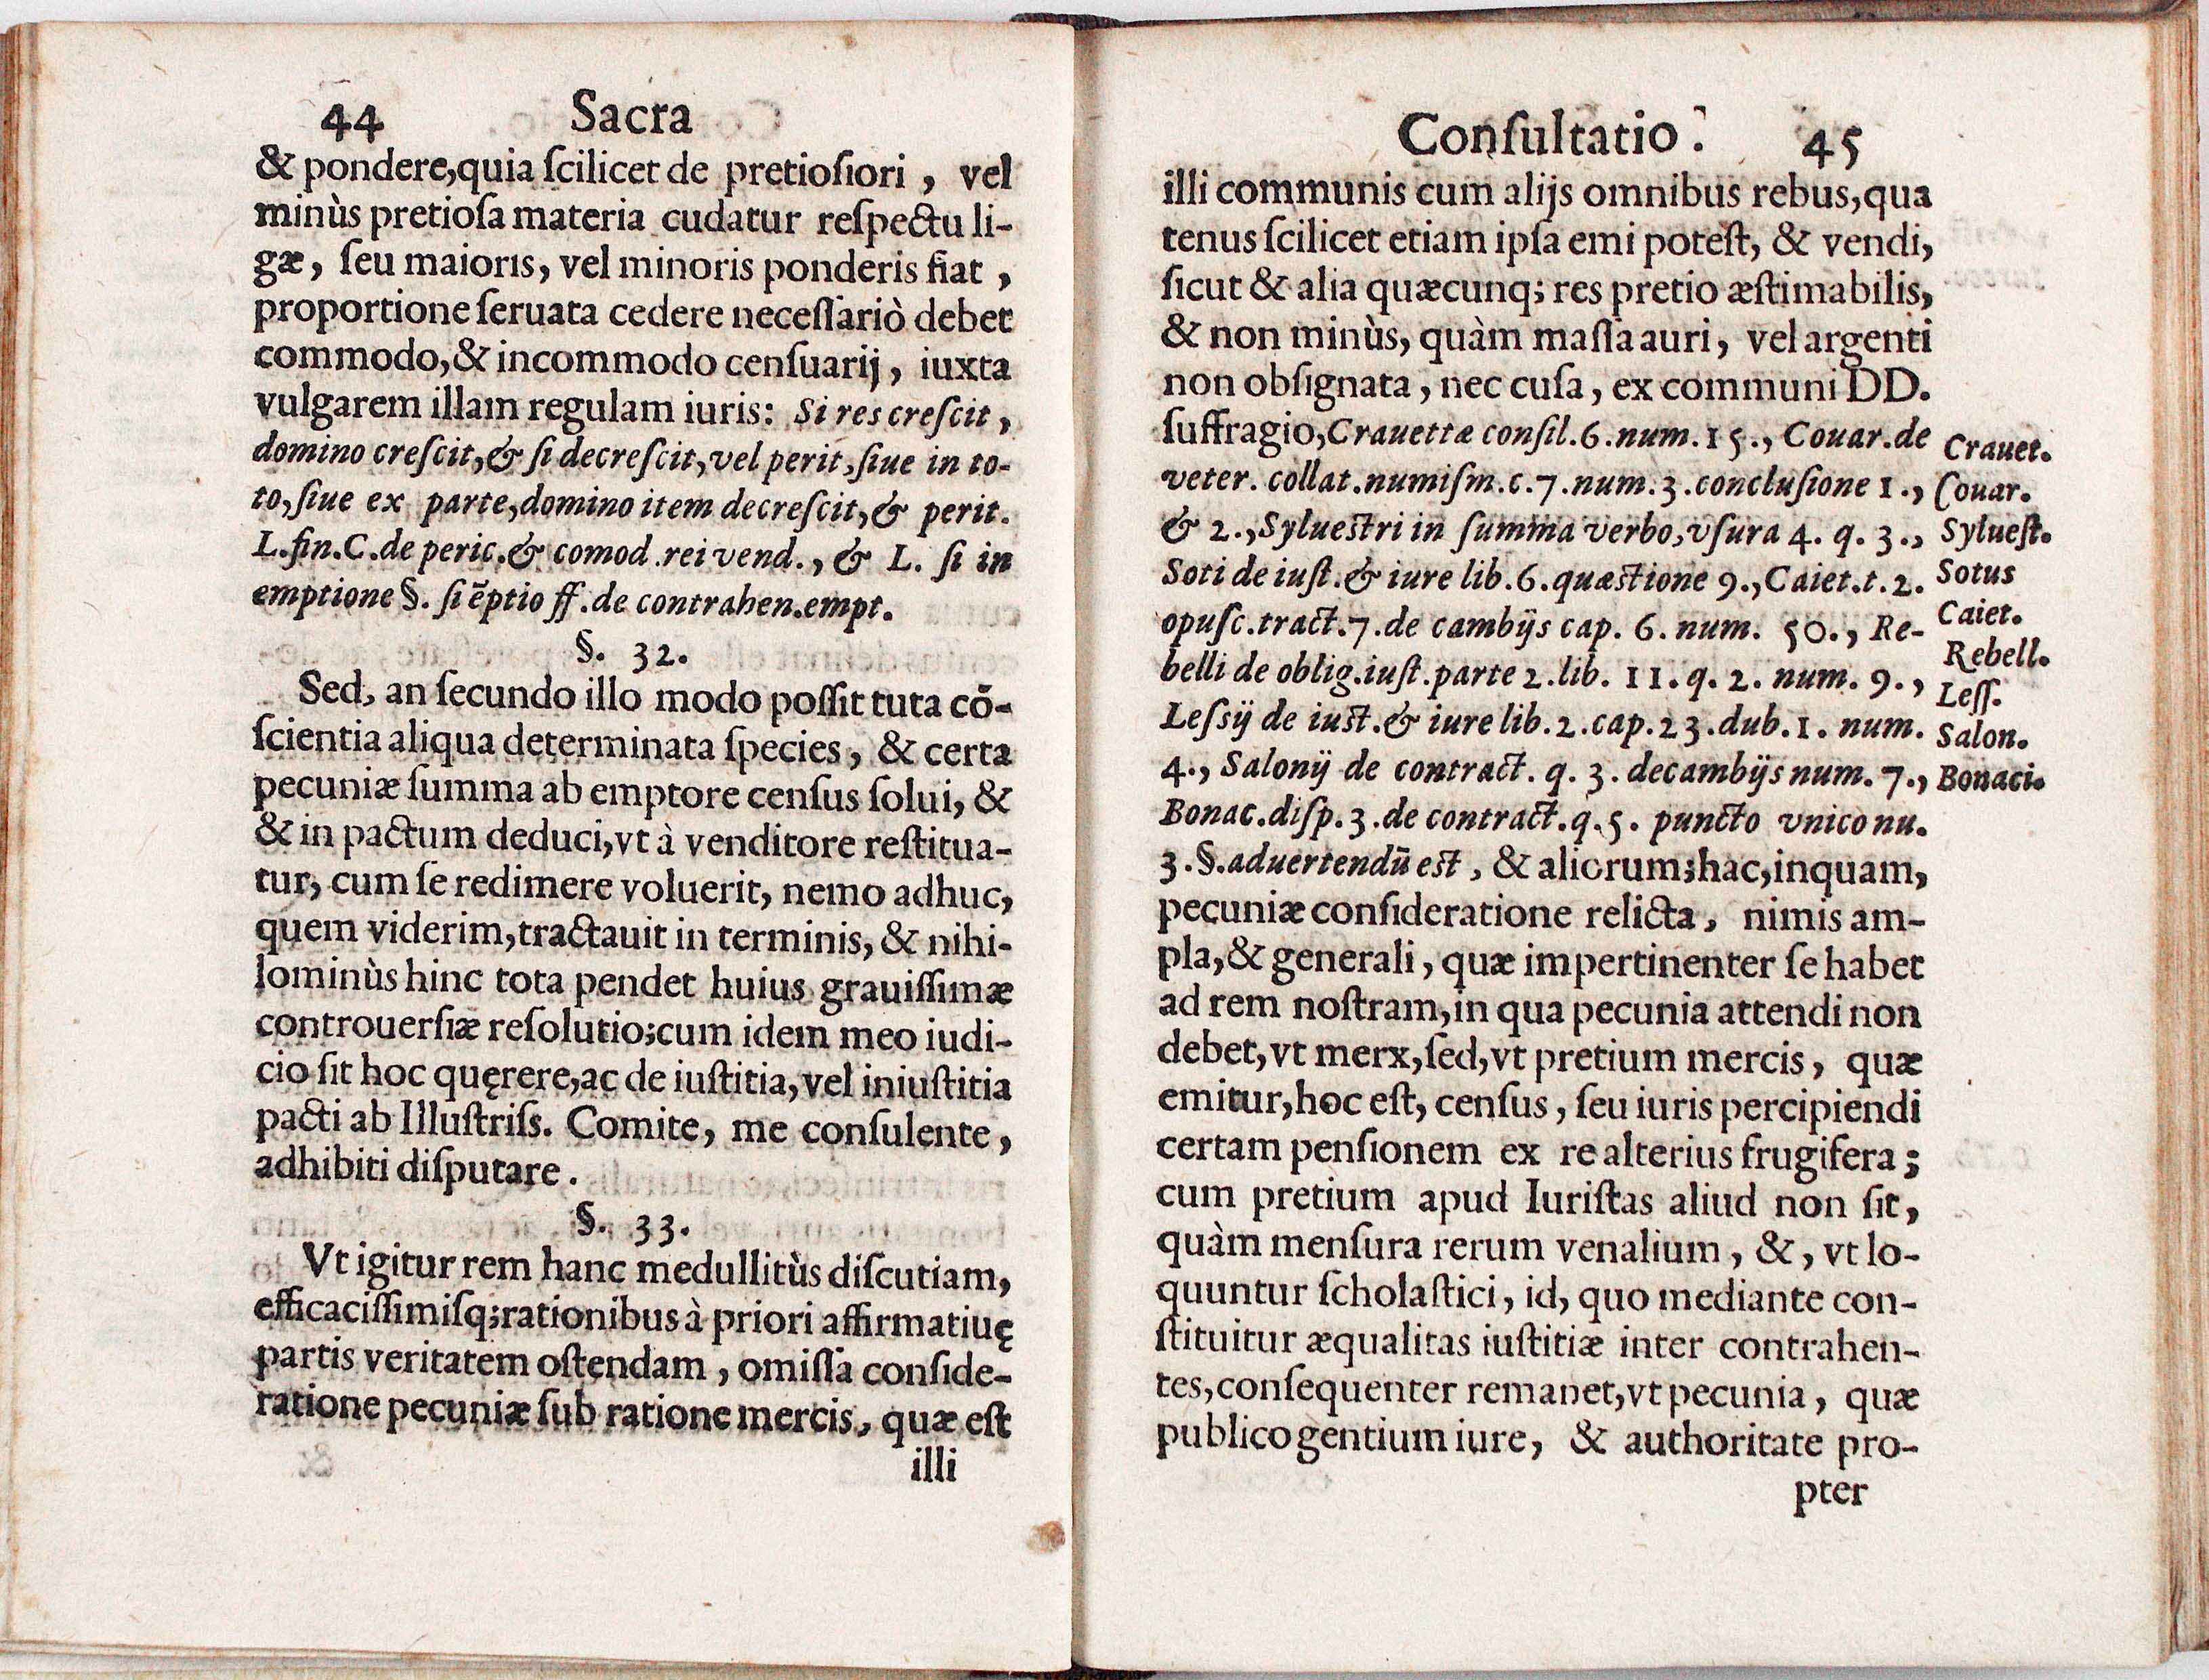 44 Sacra
& pondere,quia ſcilicet de pretioſiori , vel
minùs pretioſa materia cudatur reſpectu li-
gæ, ſeu maioris, vel minoris ponderis fiat ,
proportione ſeruata cedere neceſſariò debet
commodo,& incommodo cenſuarij, iuxta
vulgarem illam regulam iuris: Si res creſcit ,
domino creſcit,& ſi decreſcit,vel perit,ſiue in to-
to,ſiue ex parte,domino item decreſcit,& perit.
L.fin.C.de peric.& comod.rei vend., & L. ſi in
emptione §. ſi ēptio ff.de contrahen.empt.
§. 32.
Sed, an ſecundo illo modo poſſit tuta cō-
ſcientia aliqua determinata ſpecies, & certa
pecuniæ ſumma ab emptore cenſus ſolui, &
& in pactum deduci,vt à venditore reſtitua-
tur, cum ſe redimere voluerit, nemo adhuc,
quem viderim,tractauit in terminis, & nihi-
lominùs hinc tota pendet huius grauiſſimæ
controuerſiæ reſolutio;cum idem meo iudi-
cio ſit hoc quęrere,ac de iuſtitia,vel iniuſtitia
pacti ab Illuſtriſs. Comite, me conſulente,
adhibiti diſputare.
§. 33.
Vt igitur rem hanc medullitùs diſcutiam,
efficaciſſimiſq;rationibus à priori affirmatiuę
partis veritatem oſtendam , omiſſa conſide-
ratione pecuniæ ſub ratione mercis, quæ eſt
illi
Conſultatio. 45
illi communis cum alijs omnibus rebus,qua
tenus ſcilicet etiam ipſa emi poteſt, & vendi,
ſicut & alia quæcunq; res pretio æſtimabilis,
& non minùs, quàm maſſa auri, vel argenti
non obſignata , nec cuſa, ex communi DD.
ſuffragio,Crauettæ conſil.6.num.15., Couar.de
veter. collat.numiſm.c.7.num.3.concluſione 1.,
& 2.,Sylueſtri in ſumma verbo,vſura 4. q. 3.,
Soti de iuſt.& iure lib.6.quæſtione 9.,Caiet.t.2.
opuſc.tract.7.de cambijs cap. 6. num. 50., Re-
belli de oblig.iuſt.parte 2.lib. 11.q. 2. num. 9.,
Leſsij de iuſt.& iure lib.2.cap.23.dub.1. num.
4., Salonij de contract. q. 3. decambijs num. 7.,
Bonac.diſp.3.de contract.q.5. puncto vnico nu.
3.§.aduertendū eſt , & aliorum;hac,inquam,
pecuniæ conſideratione relicta, nimis am-
pla,& generali, quæ impertinenter ſe habet
ad rem noſtram,in qua pecunia attendi non
debet,vt merx,ſed,vt pretium mercis, quæ
emitur,hoc eſt, cenſus, ſeu iuris percipiendi
certam penſionem ex re alterius frugifera;
cum pretium apud Iuriſtas aliud non ſit,
quàm menſura rerum venalium, &, vt lo-
quuntur ſcholaſtici, id, quo mediante con-
ſtituitur æqualitas iuſtitiæ inter contrahen-
tes,conſequenter remanet,vt pecunia, quæ
publico gentium iure, & authoritate pro-
pter
Crauet.
Couar.
Sylueſt.
Sotus
Caiet.
Rebell.
Leſſ.
Salon.
Bonaci.